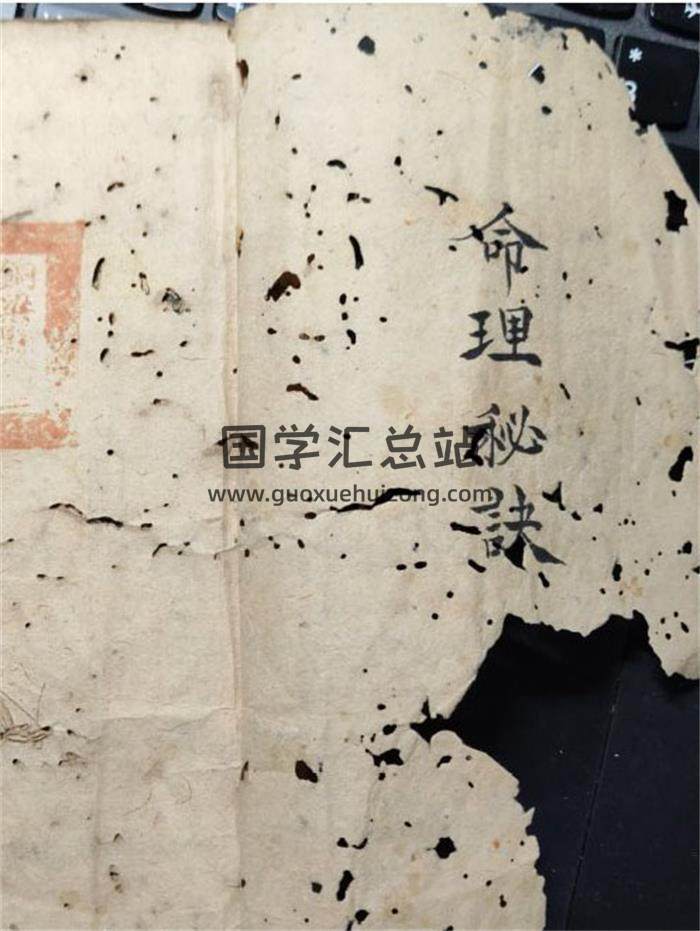 命理秘訣
国学汇总站
www.guoxuehuizong.com